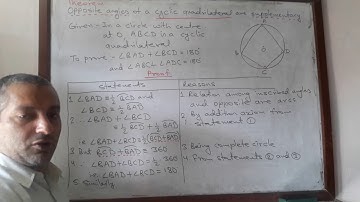 Theorem
Opposite angles of a cyclic quadrilateral are supplementary
Given:- In a circle with centre
at O, ABCD is a cyclic
quadrilateral
To prove - ∠BAD + ∠BCD = 180°
and ∠ABC + ∠ADC = 180°
Proof
Statements
Reasons
1. ∠BAD = ½ BCD and
∠BCD = ½ BAD
1. Relation among inscribed angles
and opposite arcs
2. ∴ ∠BAD + ∠BCD
= ½ BCD + ½ BAD
i.e. ∠BAD + ∠BCD = ½ (BCD + BAD)
2. By addition axiom from
statement ①
3. But BCD + BAD = 360
3. Being complete circle
4. ∴ ∠BAD + ∠BCD = ½ · 360
i.e. ∠BAD + ∠BCD = 180
4. From statements ② and ③
5. Similarly